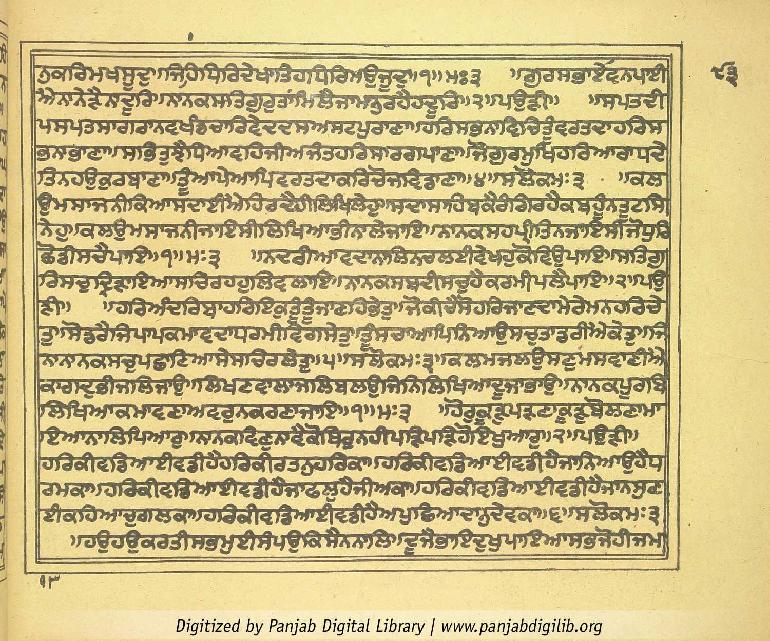 ੮੩
ਨੁਕਰਿਮਖਸੂਦਾ॥ਜਿਹਿਧਿਰਿਦੇਖਾਤਿਹਧਿਰਿਮਉਜੂਦਾ॥੧॥ਮਃ੩ ॥ਗੁਰਸਭਾਏਵਨਪਾਈ
ਐਨਾਨੇੜੈਨਾਦੂਰਿ॥ਨਾਨਕਸਤਿਗੁਰੁਤਾਂਮਿਲੈਜਾਮਨੁਰਹੈਹਦੂਰਿ॥੨॥ਪਉੜੀ॥ ॥ਸਪਤਦੀ
ਪਸਪਤਸਾਗਰਾਨਵਖੰਡਚਾਰਿਵੇਦਦਸਅਸਟਪੁਰਾਣਾ॥ਹਰਿਸਭਨਾਵਿਚਿਤੂੰਵਰਤਦਾਹਰਿਸ
ਭਨਾਭਾਣਾ॥ਸਭਿਤੁਝੈਧਿਆਵਹਿਜੀਅਜੰਤਹਰਿਸਾਰਗਪਾਣਾ॥ਜੋਗੁਰਮੁਖਿਹਰਿਆਰਾਧਦੇ
ਤਿਨਹਉਕੁਰਬਾਣਾ॥ਤੂੰਆਪੇਆਪਿਵਰਤਦਾਕਰਿਚੋਜਵਿਡਾਣਾ॥੪॥ਸਲੋਕਮਃ੩ ॥ਕਲ
ਉਮਸਾਜਨੀਕਿਆਸਦਾਈਐਹਿਰਦੈਹੀਲਿਖਿਲੇਹੁ॥ਸਦਾਸਾਹਿਬਕੈਰੰਗਿਰਹੈਕਬਹੂੰਨਤੂਟਸਿ
ਨੇਹੁ॥ਕਲਉਮਸਾਜਨੀਜਾਇਸੀਲਿਖਿਆਭੀਨਾਲੇਜਾਇ॥ਨਾਨਕਸਹਪ੍ਰੀਤਿਨਜਾਇਸੀਜੋਧੁਰਿ
ਛੋਡੀਸਚੈਪਾਇ॥੧॥ਮਃ੩ ॥ਨਦਰੀਆਵਦਾਨਾਲਿਨਚਲਈਵੇਖਹੁਕੋਵਿਉਪਾਇ॥ਸਤਿਗੁ
ਰਿਸਚੁਦ੍ਰਿੜਾਇਆਸਚਿਰਹਹੁਲਿਵਲਾਇ॥ਨਾਨਕਸਬਦੀਸਚੁਹੈਕਰਮੀਪਲੈਪਾਇ॥੨॥ਪਉ
ੜੀ॥ ॥ਹਰਿਅੰਦਰਿਬਾਹਰਿਇਕੁਤੂੰਤੂੰਜਾਣਹਿਭੇਤੁ॥ਜੋਕੀਚੈਸੋਹਰਿਜਾਣਦਾਮੇਰੇਮਨਹਰਿਚੇ
ਤੁ॥ਸੋਡਰੈਜਿਪਾਪਕਮਾਵਦਾਧਰਮੀਵਿਗਸੇਤੁ॥ਤੂੰਸਚਾਆਪਿਨਿਆਉਸਚੁਤਾਡਰੀਐਕੇਤੁ॥ਜਿ
ਨਾਨਾਨਕਸਚੁਪਛਾਣਿਆਸੇਸਚਿਰਲੇਤੁ॥੫॥ਸਲੋਕਮਃ੩॥ਕਲਮਜਲਉਸਣੁਮਸਵਾਣੀਐ
ਕਾਗਦੁਭੀਜਲਿਜਾਉ॥ਲਿਖਣਵਾਲਾਜਲਿਬਲਉਜਿਨਿਲਿਖਿਆਦੂਜਾਭਾਉ॥ਨਾਨਕਪੂਰਬਿ
ਲਿਖਿਆਕਮਾਵਣਾਅਵਰੁਨਕਰਣਾਜਾਇ॥੧॥ਮਃ੩ ॥ਹੋਰੁਕੂੜੁਪੜਣਾਕੂੜੁਬੋਲਣਾਮਾ
ਇਆਨਾਲਿਪਿਆਰੁ॥ਨਾਨਕਵਿਣੁਨਾਵੈਕੋਥਿਰੁਨਹੀਪੜਿਪੜਿਹੋਇਖੁਆਰੁ॥੨॥ਪਉੜੀ॥
ਹਰਿਕੀਵਡਿਆਈਵਡੀਹੈਹਰਿਕੀਰਤਨੁਹਰਿਕਾ॥ਹਰਿਕੀਵਡਿਆਈਵਡੀਹੈਜਾਨਿਆਉਹੈਧ
ਰਮਕਾ॥ਹਰਿਕੀਵਡਿਆਈਵਡੀਹੈਜਾਫਲੁਹੈਜੀਅਕਾ॥ਹਰਿਕੀਵਡਿਆਈਵਡੀਹੈਜਾਨਸੁਣ
ਈਕਹਿਆਚੁਗਲਕਾ॥ਹਰਿਕੀਵਡਿਆਈਵਡੀਹੈਅਪੁਛਿਆਦਾਨੁਦੇਵਕਾ॥੬॥ਸਲੋਕਮਃ੩
॥ਹਉਹਉਕਰਤੀਸਭਮੁਈਸੰਪਉਕਿਸੈਨਨਾਲਿ॥ਦੂਜੈਭਾਇਦੁਖੁਪਾਇਆਸਭਜੋਹੀਜਮ
੧੩
Digitized by Panjab Digital Library | www.panjabdigilib.org